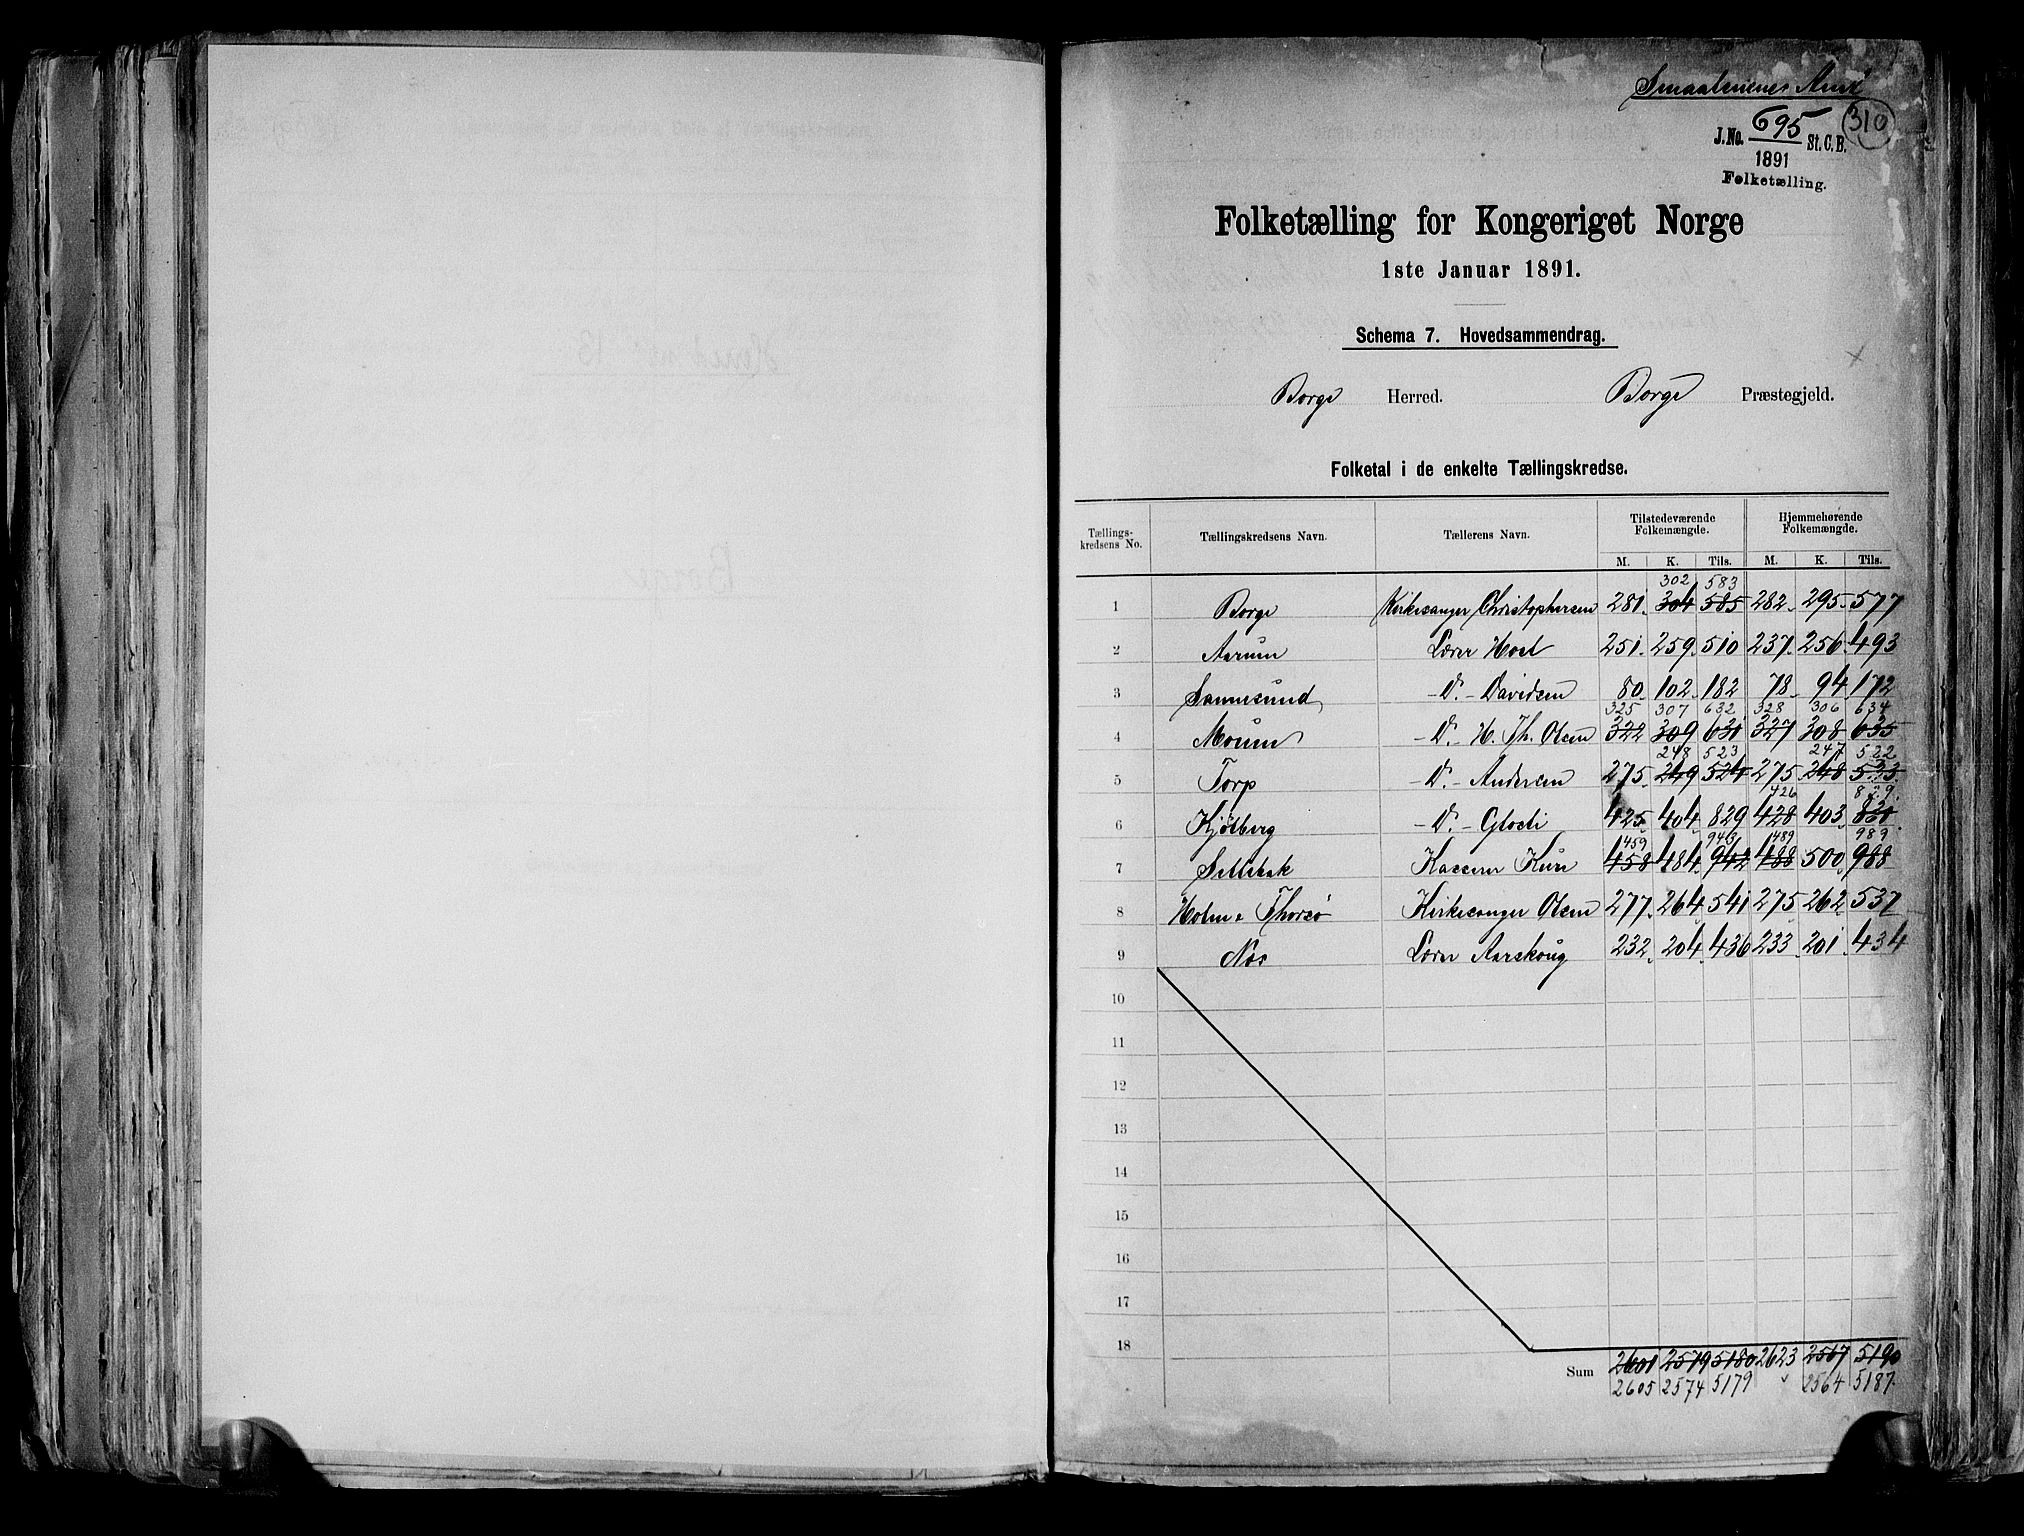 Smaalenenes Amt
J.No. 695 St. C. B. 310
1891
Folketælling.
Folketælling for Kongeriget Norge
1ste Januar 1891.
Schema 7. Hovedsammendrag.
Borge Herred. Borge Præstegjeld.
Folketal i de enkelte Tællingskredse.
Tællings-kredsens No. Tællingskredsens Navn. Tællerens Navn. Tilstedeværende Folkemængde. Hjemmehørende Folkemængde.
M. K. Tils. M. K. Tils.
302 583
1 Borge Kirkesanger Christophersen 281 304 585 282 295 577
2 Aarum Lærer Høst 251 259 510 237 256 493
3 Sannesund -D.- Davidsen 80 102 182 78 94 172
325 307 632 328 306 634
4 Moum -D.- H. Th. Olsen 322 309 631 327 308 635
248 523 247 522
5 Torp -D.- Andersen 275 249 524 275 248 523
426 829
6 Kjølberg -D.- Glosli 425 404 829 428 403 830
459 943 489 989
7 Sellebak Kasserer Kure 458 484 942 488 500 988
8 Holm & Thorsø Kirkesanger Olsen 277 264 541 275 262 537
9 Næs Lærer Aarskoug 232 204 436 233 201 434
10
11
12
13
14
15
16
17
18
Sum 2601 2579 5180 2623 2567 5190
2605 2574 5179 2564 5187